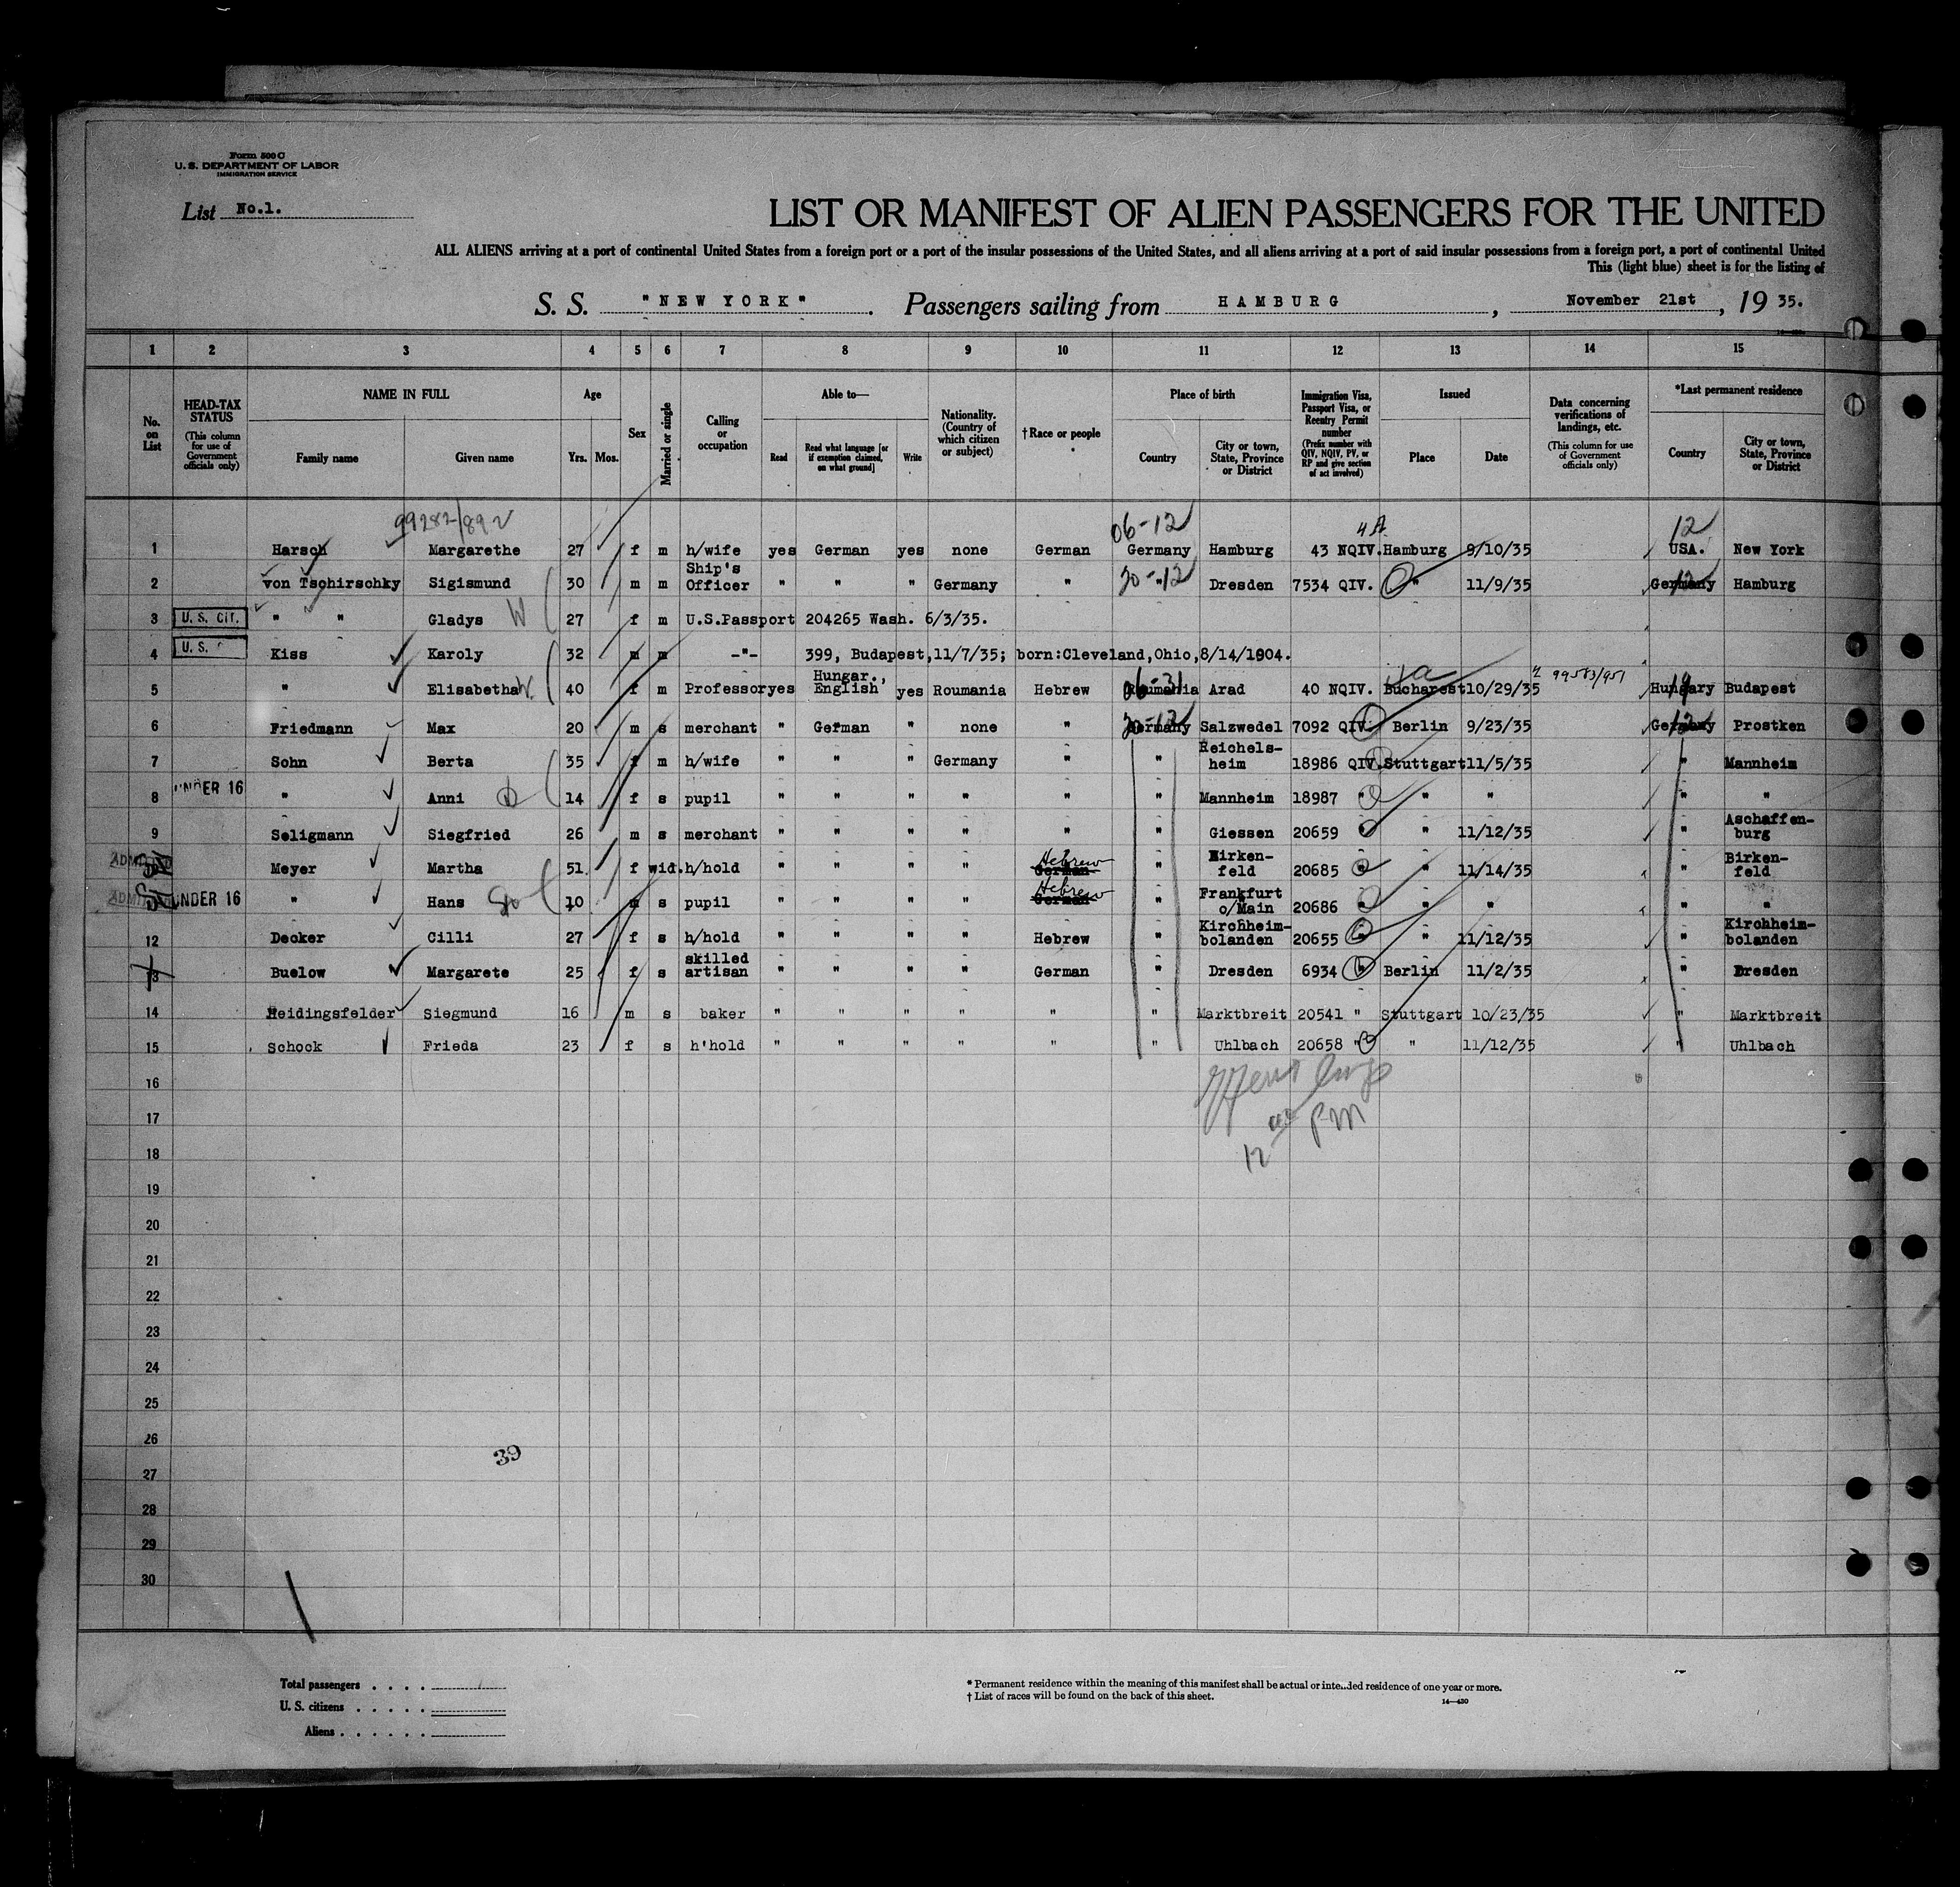 Form 500 C
U. S. DEPARTMENT OF LABOR
IMMIGRATION SERVICE
List No.1.
LIST OR MANIFEST OF ALIEN PASSENGERS FOR THE UNITED
ALL ALIENS arriving at a port of continental United States from a foreign port or a port of the insular possessions of the United States, and all aliens arriving at a port of said insular possessions from a foreign port, a port of continental United
This (light blue) sheet is for the listing of
S. S. "NEW YORK". Passengers sailing from HAMBURG, November 21st, 19 35.
1 2 3 4 5 6 7 8 9 10 11 12 13 14 15
No. on List
HEAD-TAX STATUS (This column for use of Government officials only)
NAME IN FULL Family name Given name
Age Yrs. Mos.
Sex
Married or single
Calling or occupation
Able to— Read Read what language [or if exemption claimed, on what ground] Write
Nationality. (Country of which citizen or subject)
†Race or people
Place of birth Country City or town, State, Province or District
Immigration Visa, Passport Visa, or Reentry Permit number (Prefix number with QIV, NQIV, PV, or RP and give section of act involved)
Issued Place Date
Data concerning verifications of landings, etc. (This column for use of Government officials only)
*Last permanent residence Country City or town, State, Province or District
99282/892 06-12 4A 12
1 Harsch Margarethe 27 f m h/wife yes German yes none German Germany Hamburg 43 NQIV. Hamburg 9/10/35 USA. New York
2 von Tschirschky Sigismund 30 m m Ship's Officer " " " Germany " 20-12 " Dresden 7534 QIV. " 11/9/35 Germany 12 Hamburg
3 U. S. CIT. " " Gladys W 27 f m U.S.Passport 204265 Wash. 6/3/35.
4 U. S. Kiss Karoly 32 m m -"- 399, Budapest,11/7/35; born:Cleveland,Ohio,8/14/1904.
5 " Elisabetha W. 40 f m Professor yes Hungar., English yes Roumania Hebrew Roumania 06-31 Arad 40 NQIV. Bucharest 10/29/35 99583/951 Hungary 19 Budapest
6 Friedmann Max 20 m s merchant " German " none " Germany 20-12 Salzwedel 7092 QIV. Berlin 9/23/35 Germany 12 Prostken
7 Sohn Berta 35 f m h/wife " " " Germany " " Reichels-heim 18986 QIV. Stuttgart 11/5/35 " Mannheim
8 UNDER 16 " Anni 14 f s pupil " " " " " " Mannheim 18987 " " " " "
9 Seligmann Siegfried 26 m s merchant " " " " " " Giessen 20659 " " 11/12/35 " Aschaffen-burg
Meyer Martha 51 f wid. h/hold " " " " German Hebrew " Birken-feld 20685 " " 11/14/35 " Birken-feld
UNDER 16 " Hans 10 m s pupil " " " " German Hebrew " Frankfurt o/Main 20686 " " " " "
12 Decker Cilli 27 f s h/hold " " " " Hebrew " Kirchheim-bolanden 20655 " " 11/12/35 " Kirchheim-bolanden
13 Buelow Margarete 25 f s skilled artisan " " " " German " Dresden 6934 " Berlin 11/2/35 " Dresden
14 Heidingsfelder Siegmund 16 m s baker " " " " " " Marktbreit 20541 " Stuttgart 10/23/35 " Marktbreit
15 Schock Frieda 23 f s h'hold " " " " " " Uhlbach 20658 " " 11/12/35 " Uhlbach
16
17
PM
12
18
19
20
21
22
23
24
25
26
39
27
28
29
30
Total passengers . . . .
U. S. citizens . . . . .
Aliens . . . . . .
* Permanent residence within the meaning of this manifest shall be actual or intended residence of one year or more.
† List of races will be found on the back of this sheet.
14—430